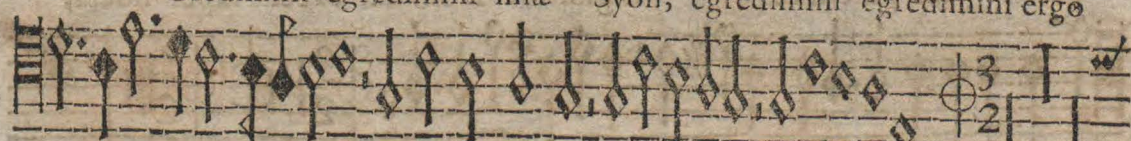 egredimini filiæ Syon, egredimini egredimini ergo
3
2